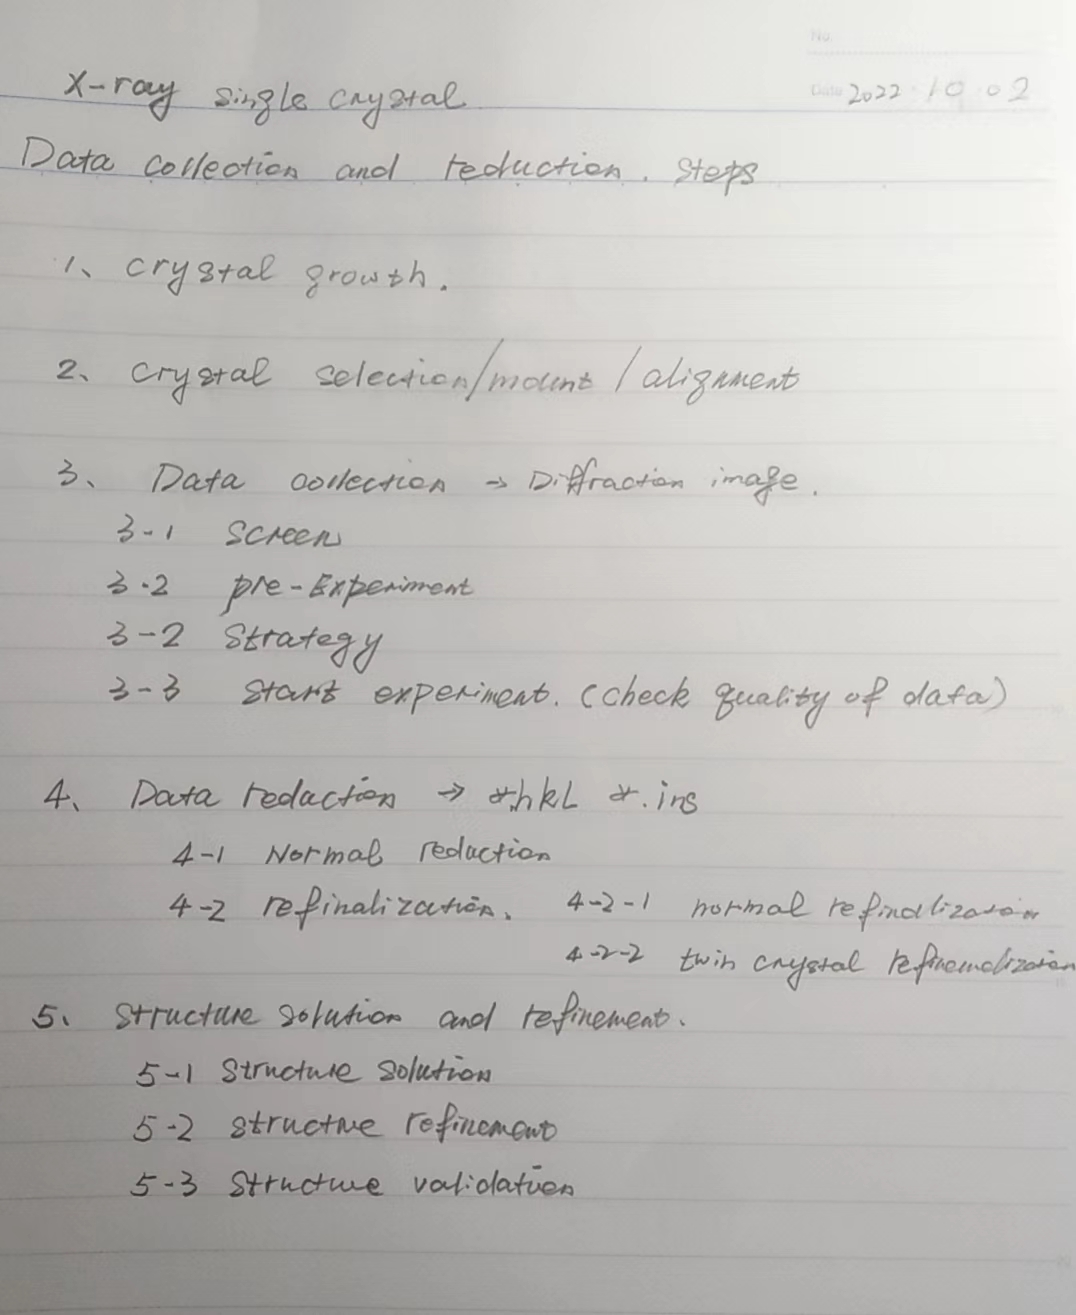 No.
Date 2022.10.02
X-ray single crystal
Data collection and reduction. Steps
1、crystal growth.
2、crystal selection/mount/alignment
3、Data collection → Diffraction image.
3-1 Screen
3-2 pre-Experiment
3-2 Strategy
3-3 Start experiment. (check quality of data)
4、Data reduction → *.hkl *.ins
4-1 Normal reduction
4-2 refinalization. 4-2-1 normal refinalization
4-2-2 twin crystal
5、Structure solution and refinement.
5-1 Structure solution
5-2 structure refinement
5-3 Structure validation